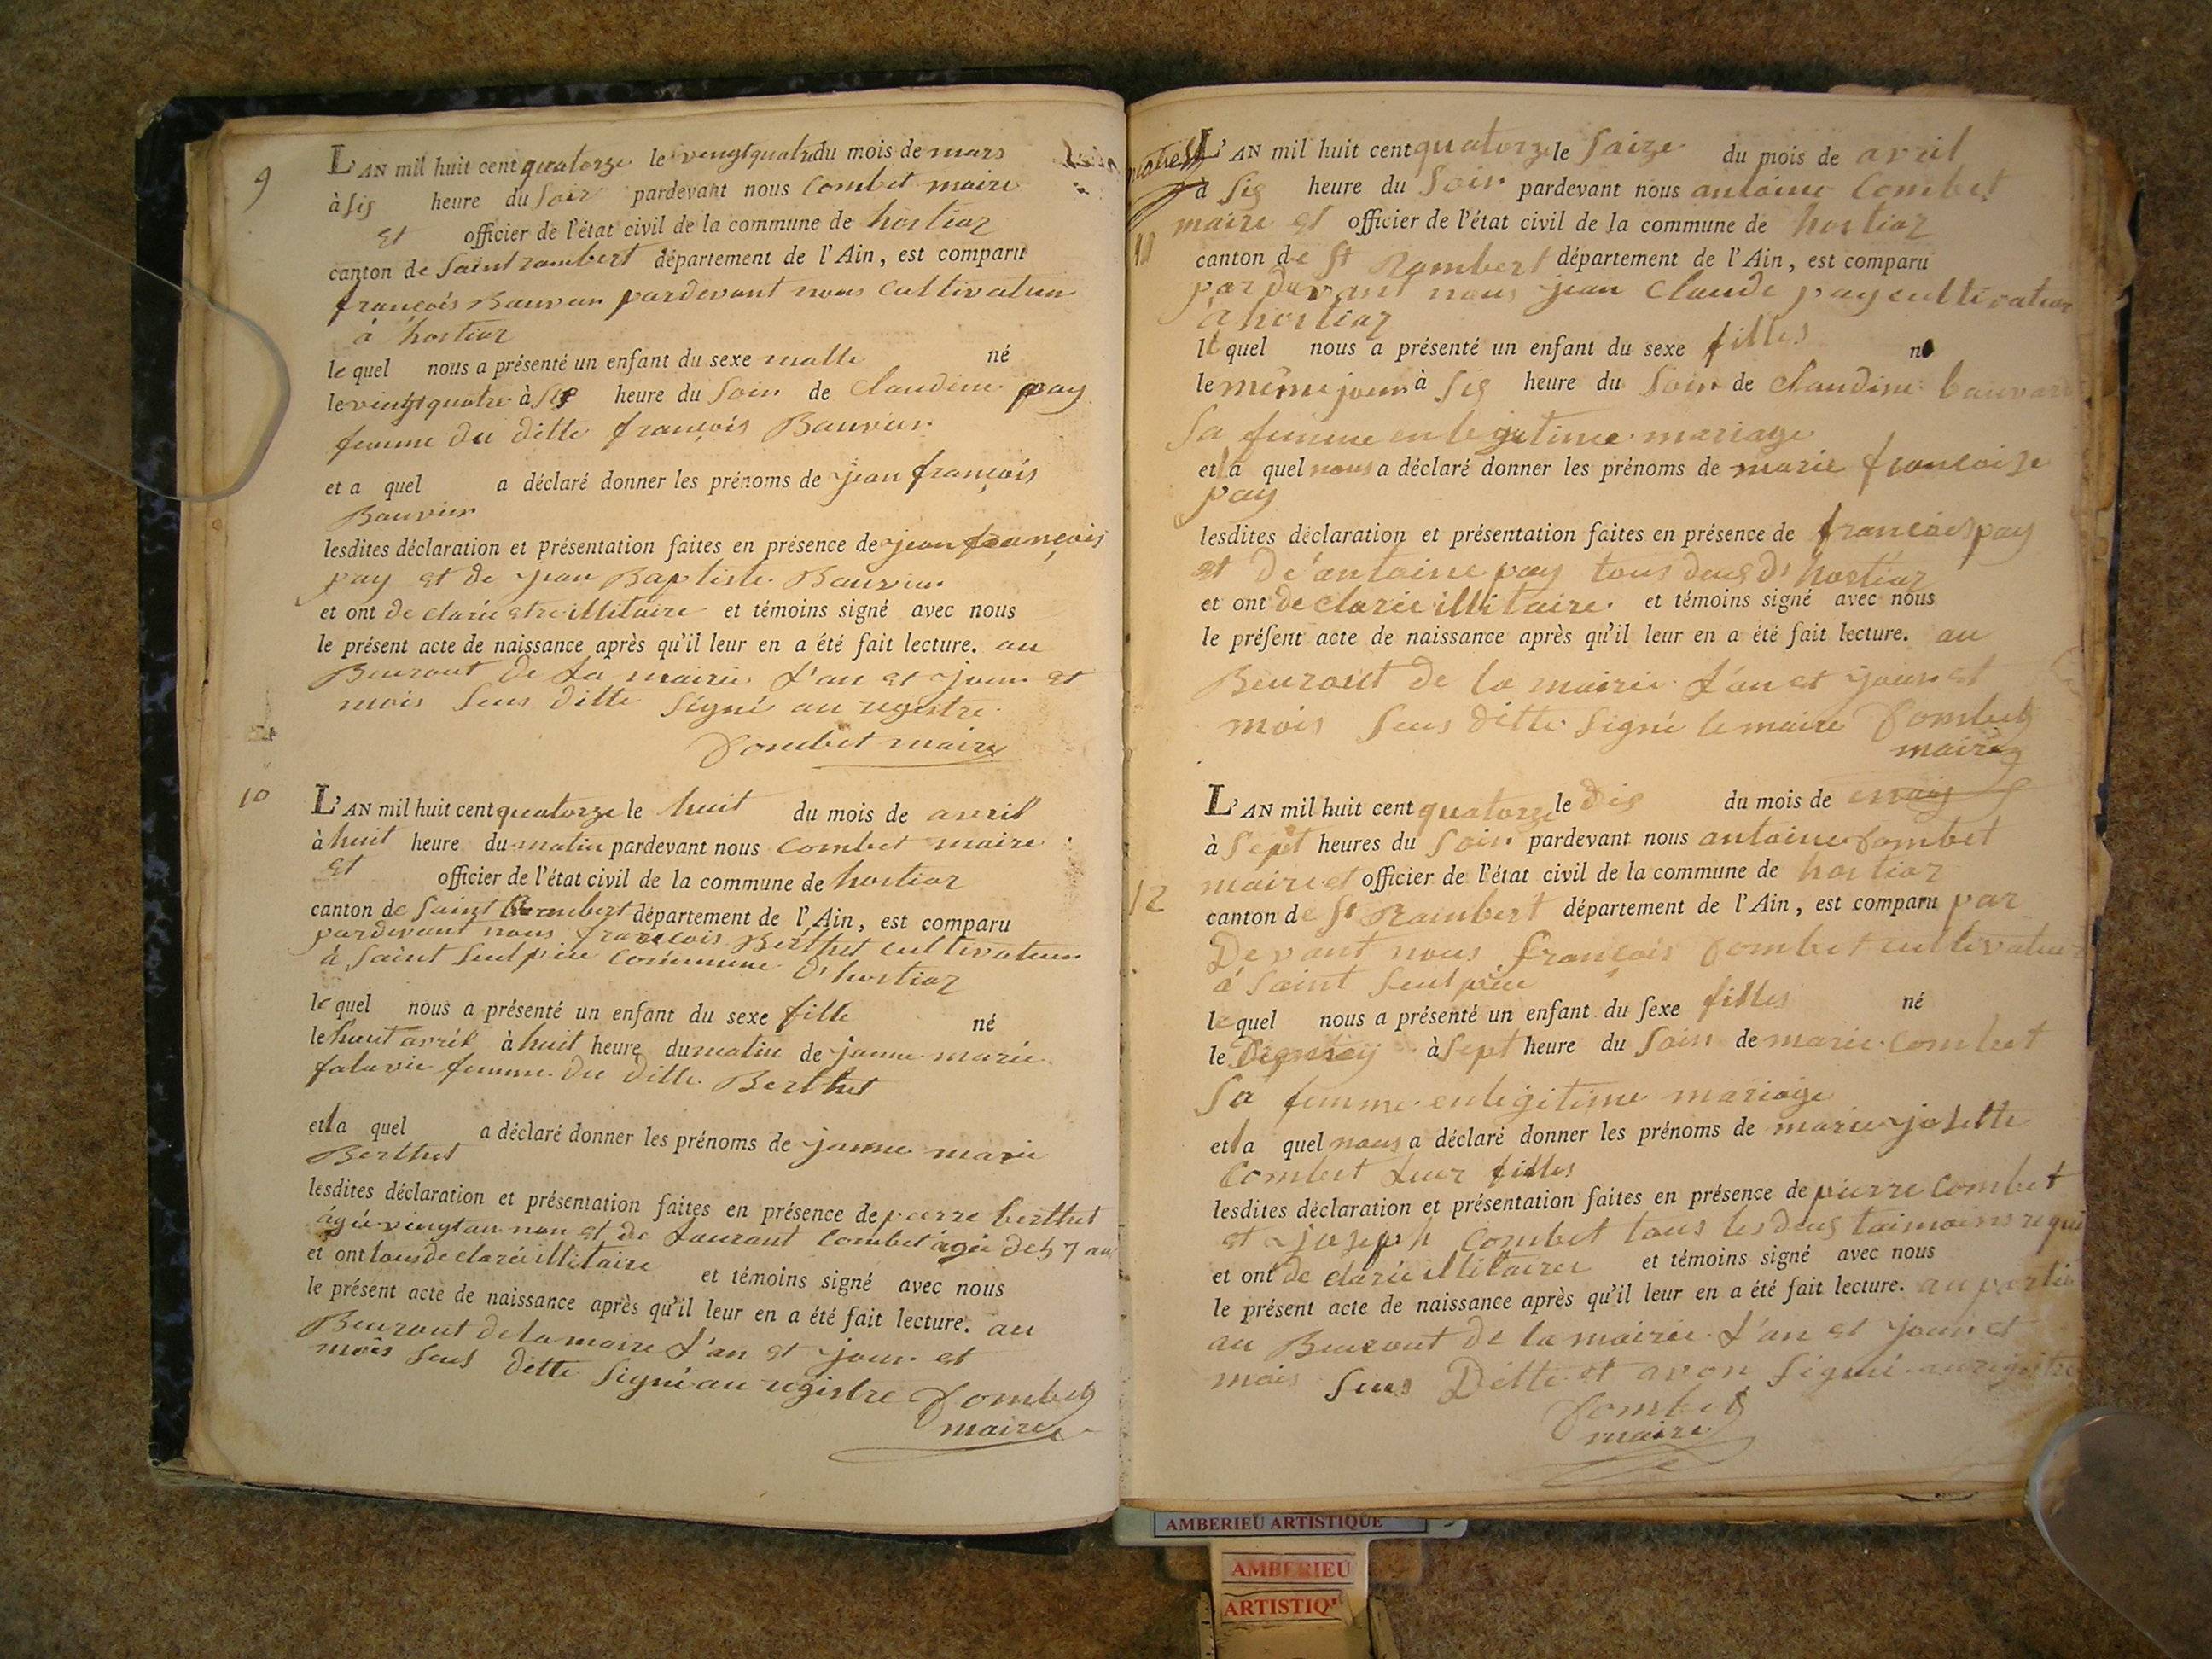 9
L'AN mil huit cent quatorze le vengtquatre du mois de mars
à sis heure du soir pardevant nous Combet maire
et officier de l'état civil de la commune de hostiaz
canton de Saint rambert département de l'Ain, est comparu
françois Bauvur pardevant nous cultivateur
à hostiaz
le quel nous a présenté un enfant du sexe malle né
le vingtquatre à sis heure du soir de Claudine pay
femme du ditte françois Bauvur
et a quel a déclaré donner les prénoms de jean françois
Bauvur
lesdites déclaration et présentation faites en présence de jean françois
pay et de jean Baptiste Bauvur
et ont de clarié etre illitaire et témoins signé avec nous
le présent acte de naissance après qu'il leur en a été fait lecture. au
Beuraut de La mairie L'an et jour et
mois sus ditte signé au registre
Combet maire
10
L'AN mil huit cent quatorze le huit du mois de avril
à huit heure du matin pardevant nous Combet maire
et officier de l'état civil de la commune de hostiaz
canton de Saint Rambert département de l'Ain, est comparu
pardevant nous françois Berthet cultivateur
à Saint Seulpice Commune d'hostiaz
le quel nous a présenté un enfant du sexe fille né
le huit avril à huit heure du matin de janne marie
falavie femme du ditte Berthet
et la quel a déclaré donner les prénoms de janne marie
Berthet
lesdites déclaration et présentation faites en présence de pierre berthet
agié vingt an et de Laurant Combet agié de 57 an
et ont tous de clarié illitaire et témoins signé avec nous
le présent acte de naissance après qu'il leur en a été fait lecture. au
Beuraut de la maire L'an et jour et
mois sus ditte signé au registre Combet
maire
11
L'AN mil huit cent quatorze le saize du mois de avril
à sis heure du soir pardevant nous antoine Combet
maire et officier de l'état civil de la commune de hostiaz
canton de St Rambert département de l'Ain, est comparu
par devant nous jean Claude pay cultivateur
à hostiaz
le quel nous a présenté un enfant du sexe filles n
le même jour à sis heure du soir de Claudine bauvard
Sa femme en legitime mariage
et la quel nous a déclaré donner les prénoms de marie francoise
pay
lesdites déclaration et présentation faites en présence de francois pay
et de antoine pay tous deus d'hostiaz
et ont de clarié illitaire et témoins signé avec nous
le présent acte de naissance après qu'il leur en a été fait lecture. au
Beuraut de la mairie L'an et jour et
mois sus ditte signé le maire Combet
maire
12
L'AN mil huit cent quatorze le dis du mois de may
à sept heures du soir pardevant nous antoine Combet
maire et officier de l'état civil de la commune de hostiaz
canton de St Rambert département de l'Ain, est comparu par
Devant nous françois Combet cultivateur
à Saint Seulpice
le quel nous a présenté un enfant du sexe filles né
le à sept heure du soir de marie Combet
Sa femme en legitime mariage
et la quel nous a déclaré donner les prénoms de marie josette
Combet Leur filles
lesdites déclaration et présentation faites en présence de pierre Combet
et joseph Combet tous les deus taimoins requi
et ont de clarié illitaires et témoins signé avec nous
le présent acte de naissance après qu'il leur en a été fait lecture.
au Beuraut de la mairie L'an et jour et
mois sus Ditte et avon signié au registre
Combet
maire
AMBERIEU ARTISTIQUE
AMBERIEU
ARTISTIQ